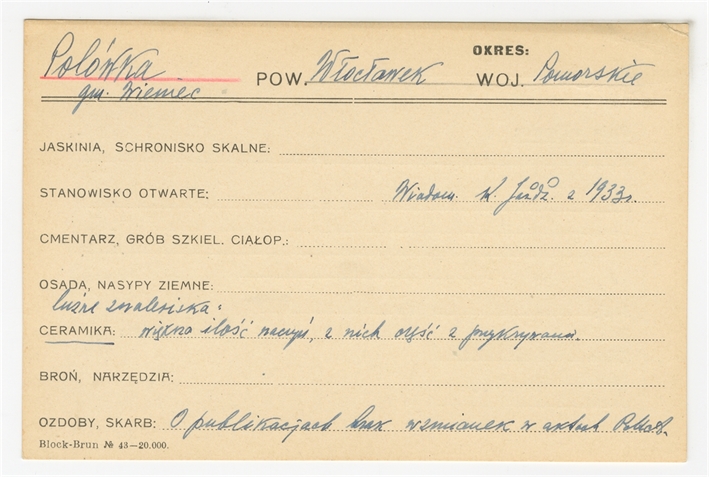 OKRES:
Polówka POW. Włocławek WOJ. Pomorskie
gm. Wieniec
JASKINIA, SCHRONISKO SKALNE:
STANOWISKO OTWARTE: Wiadom. K. Jażdż. z 1933 r.
CMENTARZ, GRÓB SZKIEL. CIAŁOP.:
OSADA, NASYPY ZIEMNE:
luźne znalezisko:
CERAMIKA: większa ilość naczyń, z nich część z pokrywami.
BROŃ, NARZĘDZIA:
OZDOBY, SKARB: O publikacjach brak wzmianek w aktach
Block-Brun № 43—20.000.